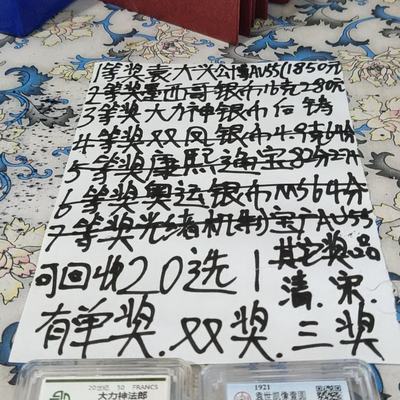 1等奖袁大头公博AU55(1850元
2等奖墨西哥银币16克280元
3等奖大力神银币 白铸
4等奖双凤银币4.9克64分
5等奖康熙通宝82分27八
6等奖奥运银币MS64分
7等奖光绪机制宝广AU55
可回收20选1
其它奖品
清.宋.
有单奖.双奖.三奖
20世纪 50 FRANCS
大力神法郎
1921
袁世凯像壹圆